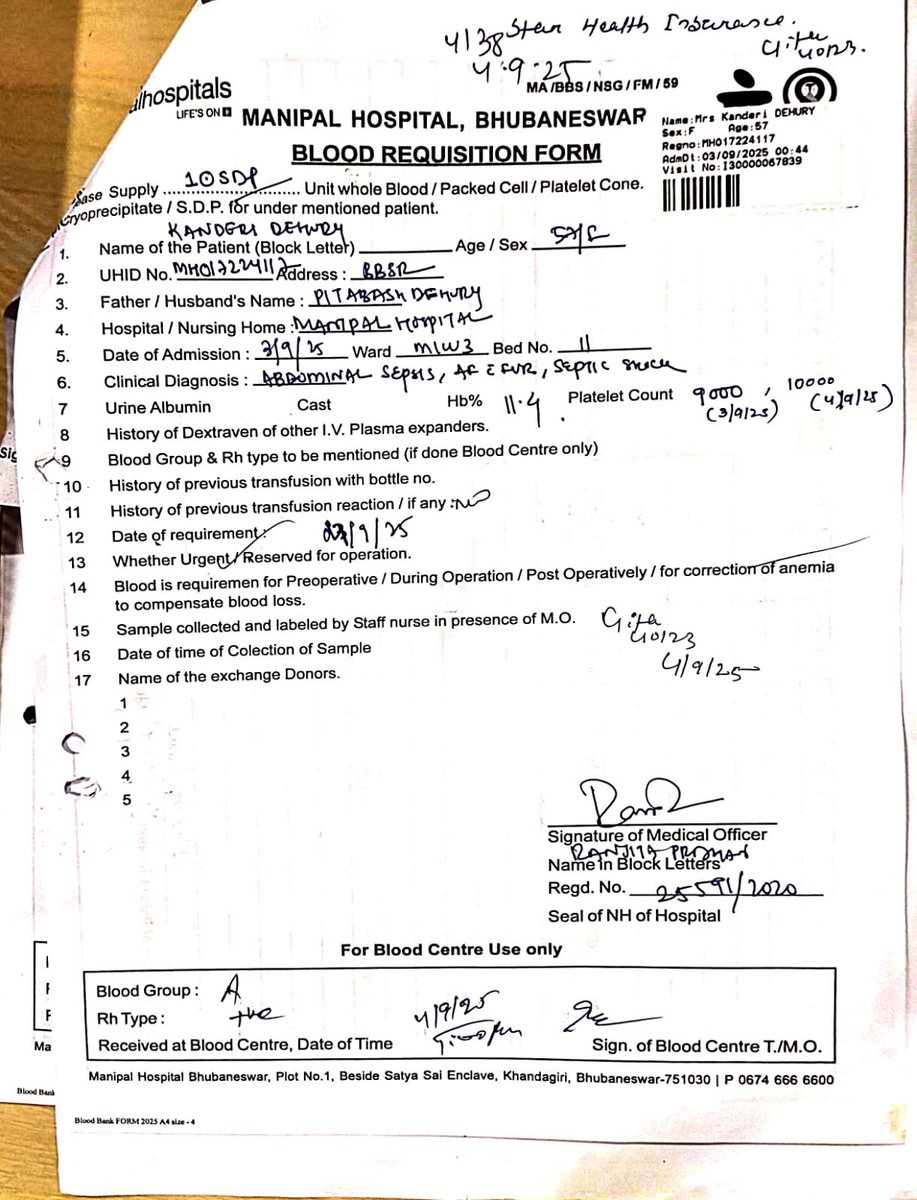 4138 Star Health Insurance.
4.9.25
Gita
40123.
hospitals
LIFE'S ON
MA/BBS/NSG/FM/59
MANIPAL HOSPITAL, BHUBANESWAR
BLOOD REQUISITION FORM
Name:Mrs Kanderi DEHURY
Sex:F Age:57
Regno:MH017224117
AdmDt:03/09/2025 00:44
Visit No:I30000067839
ase Supply 10SDP Unit whole Blood / Packed Cell / Platelet Conc.
Cryoprecipitate / S.D.P. for under mentioned patient.
1. Name of the Patient (Block Letter) KANDERI DEHURY Age / Sex 57/F
2. UHID No. MH017224117 Address : BBSR
3. Father / Husband's Name : PITABASH DEHURY
4. Hospital / Nursing Home : MANIPAL HOSPITAL
5. Date of Admission : 3/9/25 Ward MIW3 Bed No. 11
6. Clinical Diagnosis : ABDOMINAL SEPSIS, AF C FVR, SEPTIC SHOCK
7 Urine Albumin Cast Hb% 11.4 Platelet Count 9000 (3/9/25), 10000 (4/9/25)
8 History of Dextraven of other I.V. Plasma expanders.
9 Blood Group & Rh type to be mentioned (if done Blood Centre only)
10 History of previous transfusion with bottle no.
11 History of previous transfusion reaction / if any : NO
12 Date of requirement: /9/25
13 Whether Urgent / Reserved for operation.
14 Blood is requiremen for Preoperative / During Operation / Post Operatively / for correction of anemia
to compensate blood loss.
15 Sample collected and labeled by Staff nurse in presence of M.O. Gita
40123
16 Date of time of Colection of Sample 4/9/25
17 Name of the exchange Donors.
1
2
3
4
5
Signature of Medical Officer
RANJITA PRDHAN
Name in Block Letters
Regd. No. 25591/2020
Seal of NH of Hospital
For Blood Centre Use only
Blood Group : A
Rh Type : +ve 4/9/25
Received at Blood Centre, Date of Time Sign. of Blood Centre T./M.O.
Manipal Hospital Bhubaneswar, Plot No.1, Beside Satya Sai Enclave, Khandagiri, Bhubaneswar-751030 | P 0674 666 6600
Blood Bank FORM 2025 A4 size - 4
Sig
Ma
Blood Bank